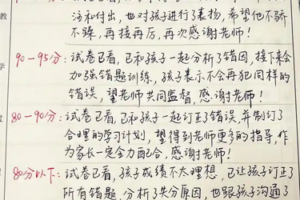 汤和付出,也对孩子进行了表扬,希望他不骄
不躁,再接再厉,再次感谢老师!
90-95分:试卷已看,已和孩子一起分析了错因,接下来会
加强错题训练,孩子表示不会再犯同样的
错误,望老师共同监督,感谢老师!
80-90分:试卷已看,已和孩子一起订正了错误,并制订了
合理的学习计划,望得到老师更多的指导,作
为家长一定全力配合,感谢老师!
80分以下:试卷已看,孩子成绩不太理想,已让孩子订正了
所有错题,分析了失分原因,也跟孩子沟通了
学